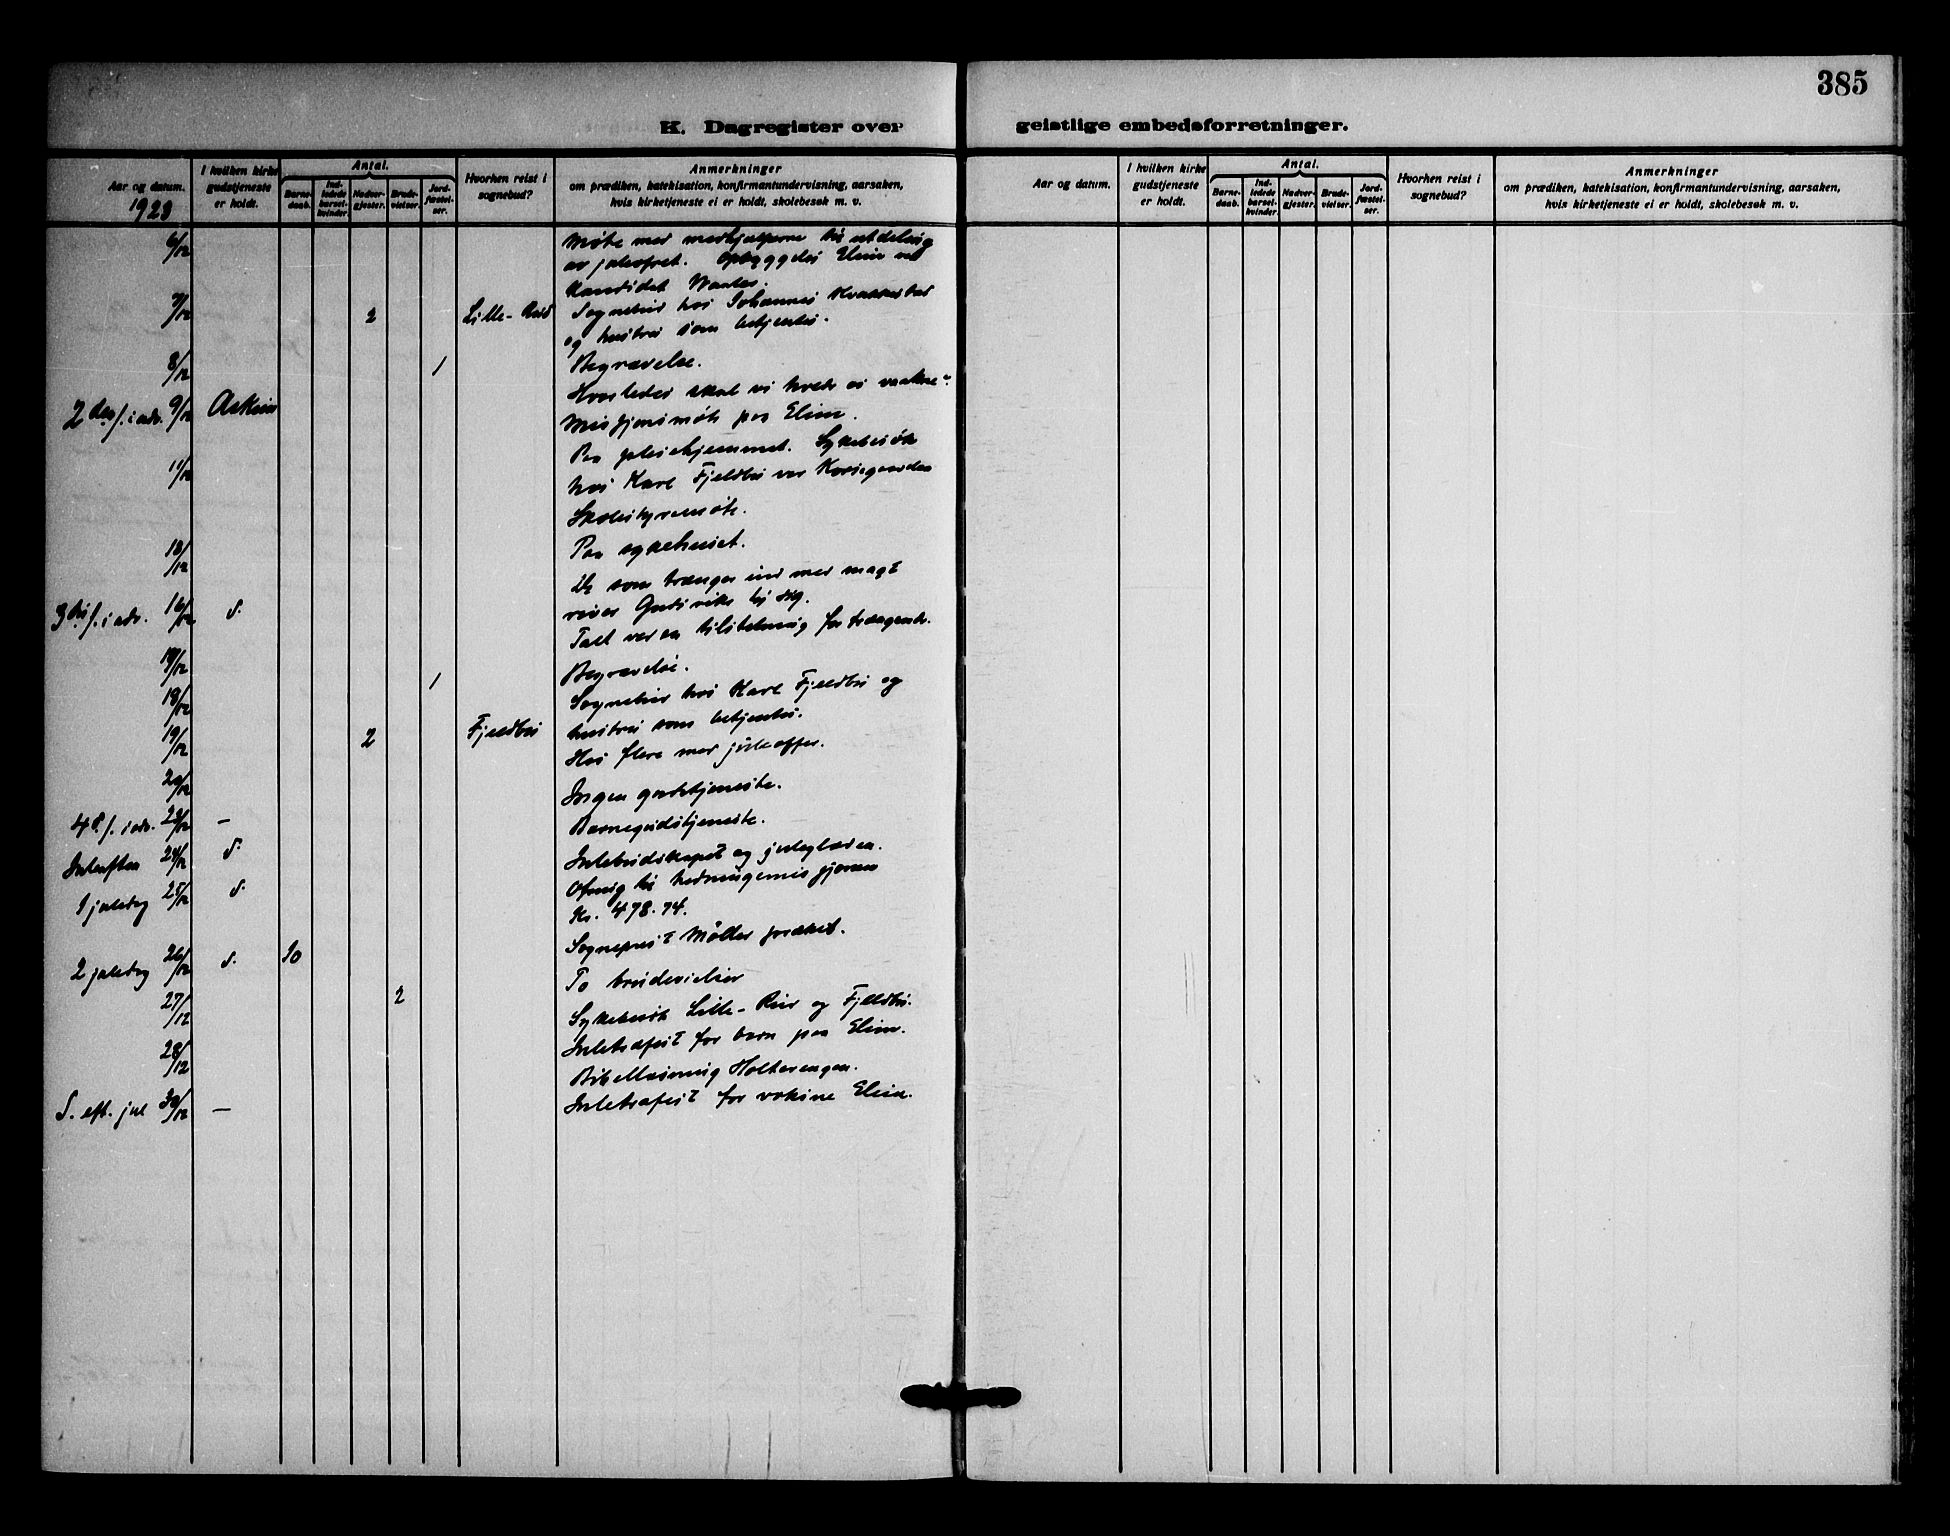 385
K. Dagregister over geistlige embedsforretninger.
Aar og datum. 1923
I hvilken kirke gudstjeneste er holdt.
Antal.
Barnedaab.
Indledede barselkvinder.
Nadvergjester.
Brudevielser.
Jordfæstelser.
Hvorhen reist i sognebud?
Anmerkninger
om prædiken, katekisation, konfirmantundervisning, aarsaken,
hvis kirketjeneste ei er holdt, skolebesøk m. v.
Aar og datum.
I hvilken kirke gudstjeneste er holdt.
Antal.
Barnedaab.
Indledede barselkvinder.
Nadvergjester.
Brudevielser.
Jordfæstelser.
Hvorhen reist i sognebud?
Anmerkninger
om prædiken, katekisation, konfirmantundervisning, aarsaken,
hvis kirketjeneste ei er holdt, skolebesøk m. v.
6/12 Møte med medhjælperne til utdeling
av juleofret. Opbyggelse Elim ved
Kandidat
7/12 2 Lille-Rud Sognebud hos Johannes
og hustru som betjentes.
8/12 1 Begravelse.
2den s. i adv. 9/12 Askim Hvorledes skal vi
Misjonsmøte paa Elim.
11/12 Paa pleiehjemmet. Sykebesøk
hos Karl Fjeldbu ved Korsegaarden
Skolestyremøte.
13/12 Paa sykehuset.
3die s. i adv. 16/12 d. De som trænger ind med magt
river Guds rike til sig.
Talt ved en tilstelning for trængende.
18/12 1 Begravelse.
19/12 2 Fjeldbu Sognebud hos Karl Fjeldbu og
hustru som betjentes.
20/12 Hos flere med juleoffer.
4de s. i adv. 23/12 — Ingen gudstjeneste.
Juleaften 24/12 d. Barnegudstjeneste.
1 juledag 25/12 d. Julebudskapet og juleglæden.
Ofring til hedningemisjonen
Kr. 478.74.
2 juledag 26/12 d. 10 Sogneprest Møller præket.
27/12 2 To brudevielser
28/12 Sykebesøk Lille-Rud og Fjeldbu.
Juletræfest for barn paa Elim.
Bibellæsning Holterengen.
S. eft. jul 30/12 — Juletræfest for voksne Elim.